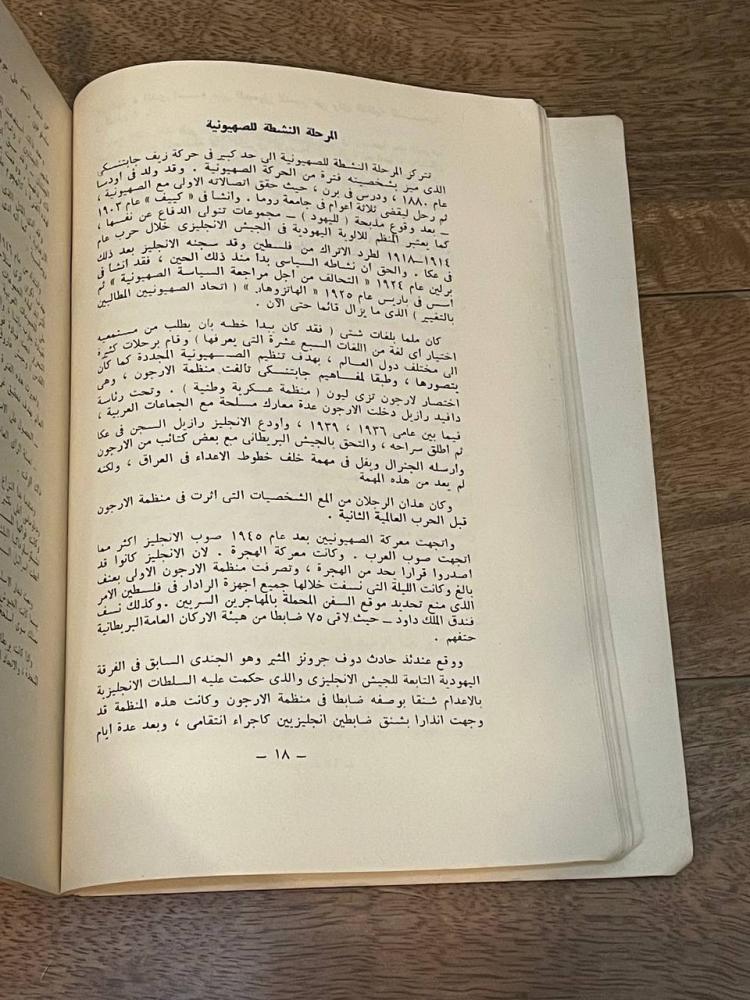 المرحلة النشطة للصهيونية
تتركز المرحلة النشطة للصهيونية الى حد كبير فى حركة زيف جابتنسكى
الذى ميز بشخصيته فترة من الحركة الصهيونية . وقد ولد فى أودسا
عام ١٨٨٠ ، ودرس فى برن ، حيث حقق اتصالاته الاولى مع الصهيونية ،
ثم رحل ليقضى ثلاثة أعوام فى جامعة روما . وانشأ فى « كييف » عام ١٩٠٣
ــ بعد وقوع مذبحة ( لليهود ) ــ مجموعات تتولى الدفاع عن نفسها ،
كما يعتبر المنظم للالوية اليهودية فى الجيش الانجليزى خلال حرب عام
١٩١٤ــ١٩١٨ لطرد الاتراك من فلسطين وقد سجنه الانجليز بعد ذلك
فى عكا . والحق ان نشاطه السياسى بدأ منذ ذلك الحين ، فقد انشأ فى
برلين عام ١٩٢٤ « التحالف من أجل مراجعة السياسة الصهيونية » ثم
أسس فى باريس عام ١٩٢٥ « الهاتزوهار » ( اتحاد الصهيونيين المطالبين
بالتغيير ) الذى ما يزال قائما حتى الآن .
كان ملما بلغات شتى ( فقد كان يبدأ خطبه بان يطلب من مستمعيه
اختيار اى لغة من اللغات السبع عشرة التى يعرفها ) وقام برحلات كثيرة
الى مختلف دول العالم ، بهدف تنظيم الصهيونية المجددة كما كان
يتصورها ، وطبقا لمفاهيم جابتنسكى تألفت منظمة الارجون ، وهى
اختصار لارجون تزى ليون ( منظمة عسكرية وطنية ) . وتحت رئاسة
دافيد رازيل دخلت الارجون عدة معارك مسلحة مع الجماعات العربية ،
فيما بين عامى ١٩٣٦ ، ١٩٣٩ ، واودع الانجليز رازيل السجن فى عكا
ثم اطلق سراحه ، والتحق بالجيش البريطانى مع بعض كتائب من الارجون
وارسله الجنرال ويفل فى مهمة خلف خطوط الاعداء فى العراق ، ولكنه
لم يعد من هذه المهمة
وكان هذان الرجلان من المع الشخصيات التى اثرت فى منظمة الارجون
قبل الحرب العالمية الثانية .
واتجهت معركة الصهيونيين بعد عام ١٩٤٥ صوب الانجليز اكثر مما
اتجهت صوب العرب . وكانت معركة الهجرة . لان الانجليز كانوا قد
اصدروا قرارا بحد من الهجرة ، وتصرفت منظمة الارجون الاولى بعنف
بالغ وكانت الليلة التى نسفت خلالها جميع اجهزة الرادار فى فلسطين الامر
الذى منع تحديد موقع السفن المحملة بالمهاجرين السريين . وكذلك نسف
فندق الملك داود ــ حيث لاقى ٧٥ ضابطا من هيئة الاركان العامة البريطانية
حتفهم .
ووقع عندئذ حادث دوف جرونز المثير وهو الجندى السابق فى الفرقة
اليهودية التابعة للجيش الانجليزى والذى حكمت عليه السلطات الانجليزية
بالاعدام شنقا بوصفه ضابطا فى منظمة الارجون وكانت هذه المنظمة قد
وجهت انذارا بشنق ضابطين انجليزيين كاجراء انتقامى ، وبعد عدة ايام
ــ ١٨ ــ